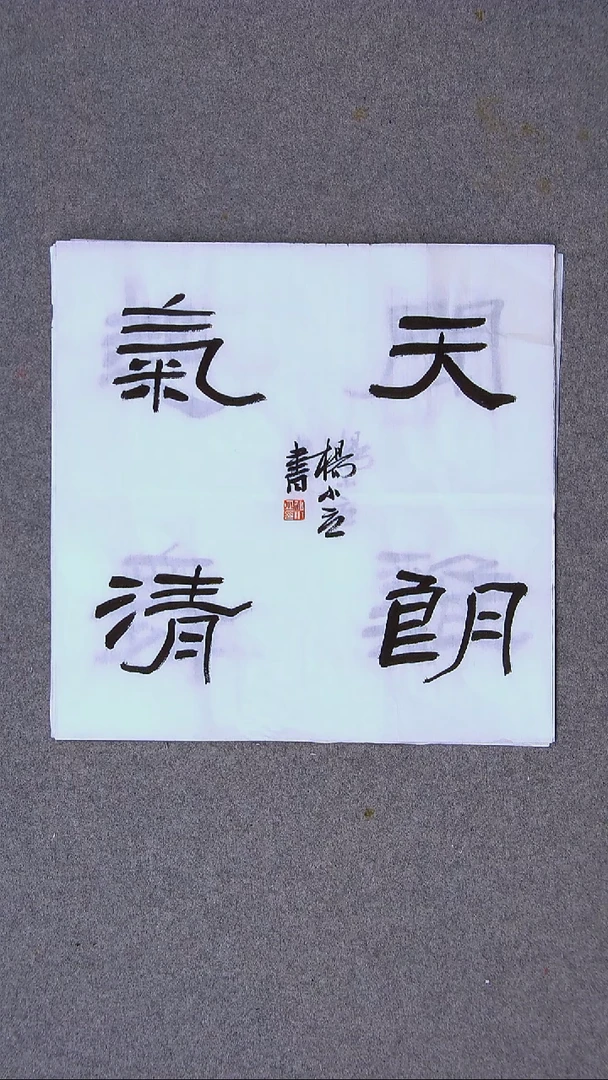 天朗
氣清
楊小立
書